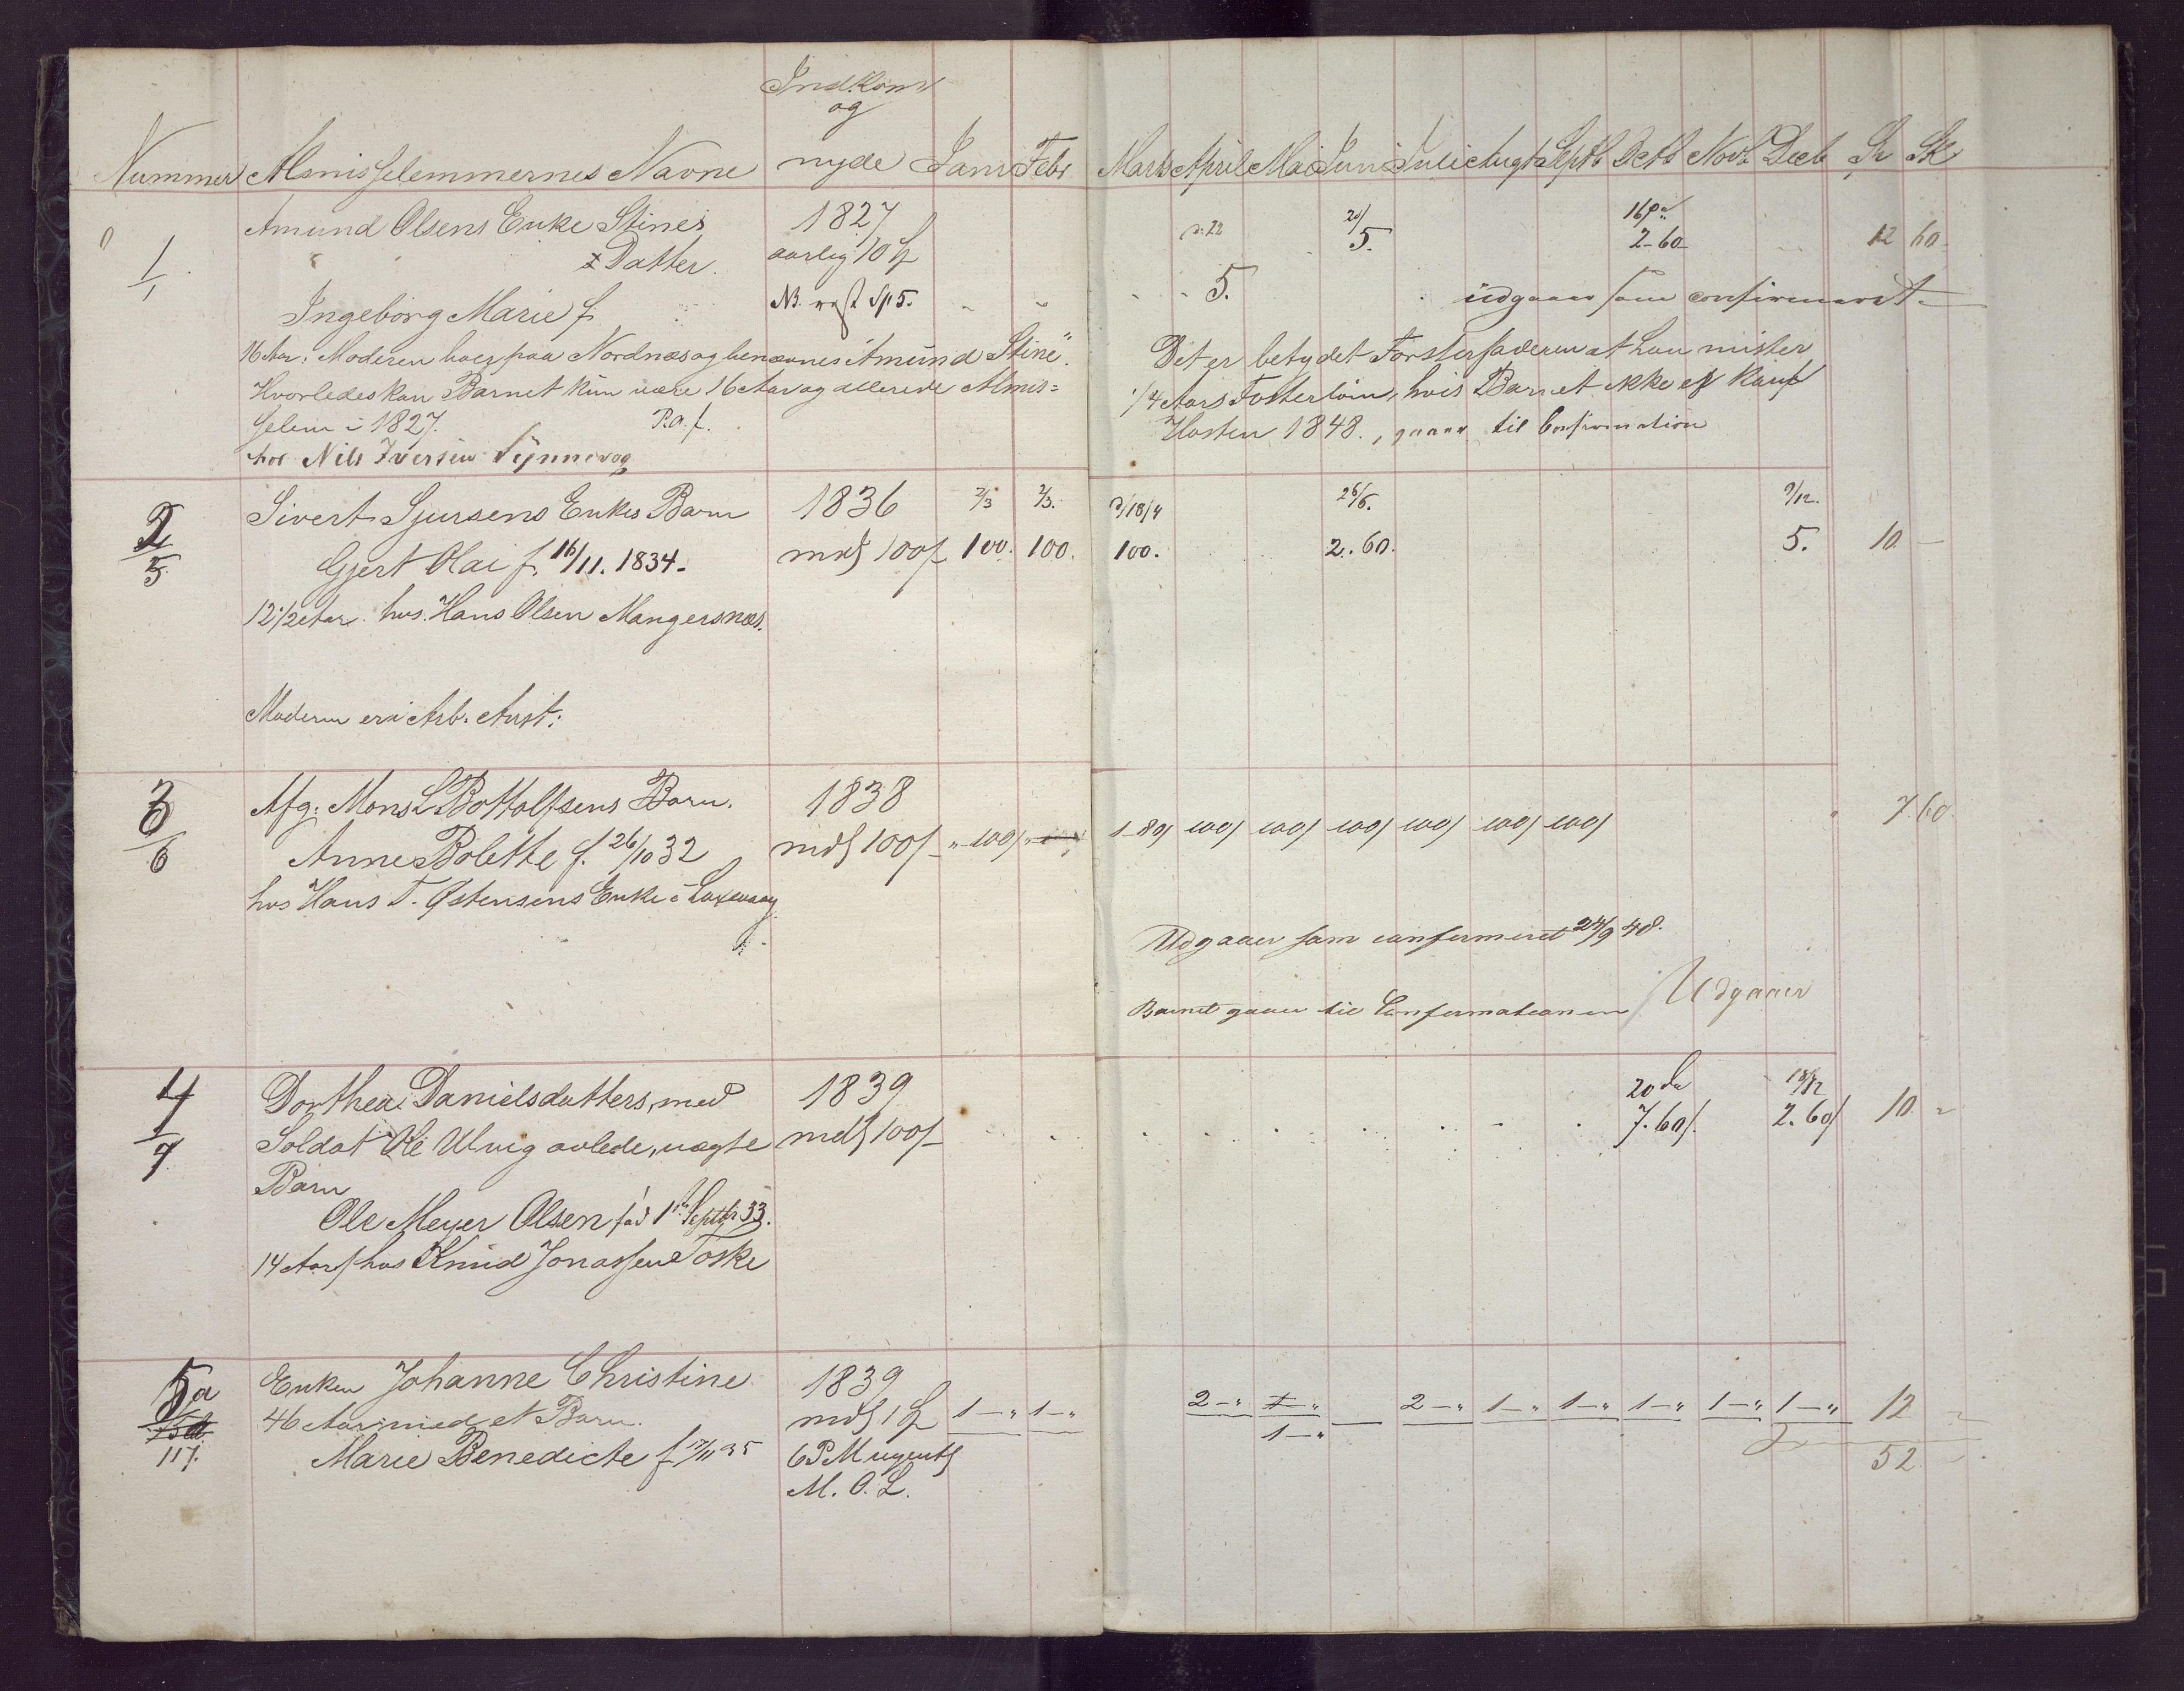 Indkom
og
Nummer Almisselemmernes Navne nyde Janr Febr Marts April Mai Juni Juli Augt Septb Octb Novb Decb Sp Sk
1/1 Amund Olsens Enke Stines 1827
Datter. aarlig 10
5. 2-60 12 60
Ingeborg Marie f. NB. rest Sp 5. 5. udgaaer som confirmeret
16 Aar. Moderen boer paa Nordnæs og benævnes "Amund Stine". Det er betydet Fosterfaderen at han mister
Hvorledes kan Barnet kun være 16 Aar og allerede Almis= 1/4 Aars Fosterløn, hvis Barnet ikke
selem i 1827. P.a.f. Høsten 1848., gaaer til Confirmation
hos Nils Iversen
2/5 Sivert Sjursens Enkes Barn 1836 2/3 2/3. 18/4 26/6. 9/12.
Gjert Olai f. 16/11. 1834. mdl 100 100. 100. 100. 2.60. 5. 10 —
12 1/2 Aar. hos. Hans Olsen Mangersnæs.
Moderen er i Arb. Anst:
3/6 Afg. Mons L Bottolfsens Barn. 1838 7.60
Anne Bolette f. 26/10 32 mdl 100 100 1-89 100 100 100 100 100 100
hos Hans T. Østensens Enke i Laxevaag
Udgaaer som confirmeret 24/9 48.
Barnet gaaer til Confirmationen Udgaaer
4/9 Dorthea Danielsdatters, med 1839 20 18/12
Soldat Ole Ulvig avlede, uægte mdl 100 7.60 2.60 10
Barn
Ole Meyer Olsen fød 1 Septbr 33.
14 Aar hos Knud Jonassen Toske
5a Enken Johanne Christine 1839
46 Aar med et Barn. mdl 1 1— 1— 2— 1— 2— 1— 1— 1— 1— 1— 12
117. Marie Benedicte f 35 1— 52
M. O. L.